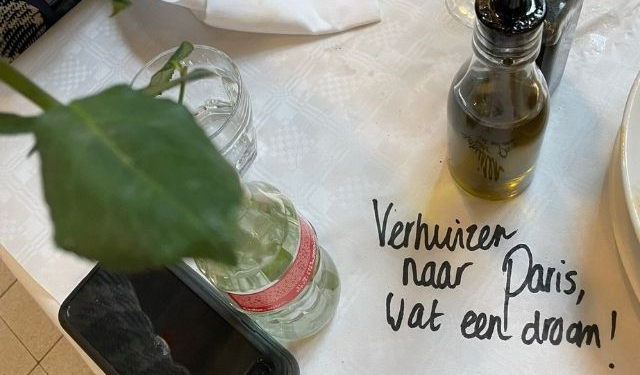 Verhuizen
naar Paris,
Wat een droom!